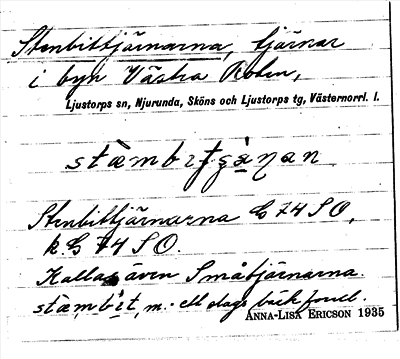 Stenbittjärnarna, tjärnar
i byn Västra
Ljustorps sn, Njurunda, Sköns och Ljustorps tg, Västernorrl. l.
Stenbittjärnarna G 74 SO,
k. G 74 SO.
Kallas även Småtjärnarna.
m. - ett slags bäckforell.
ANNA-LISA ERICSON 1935